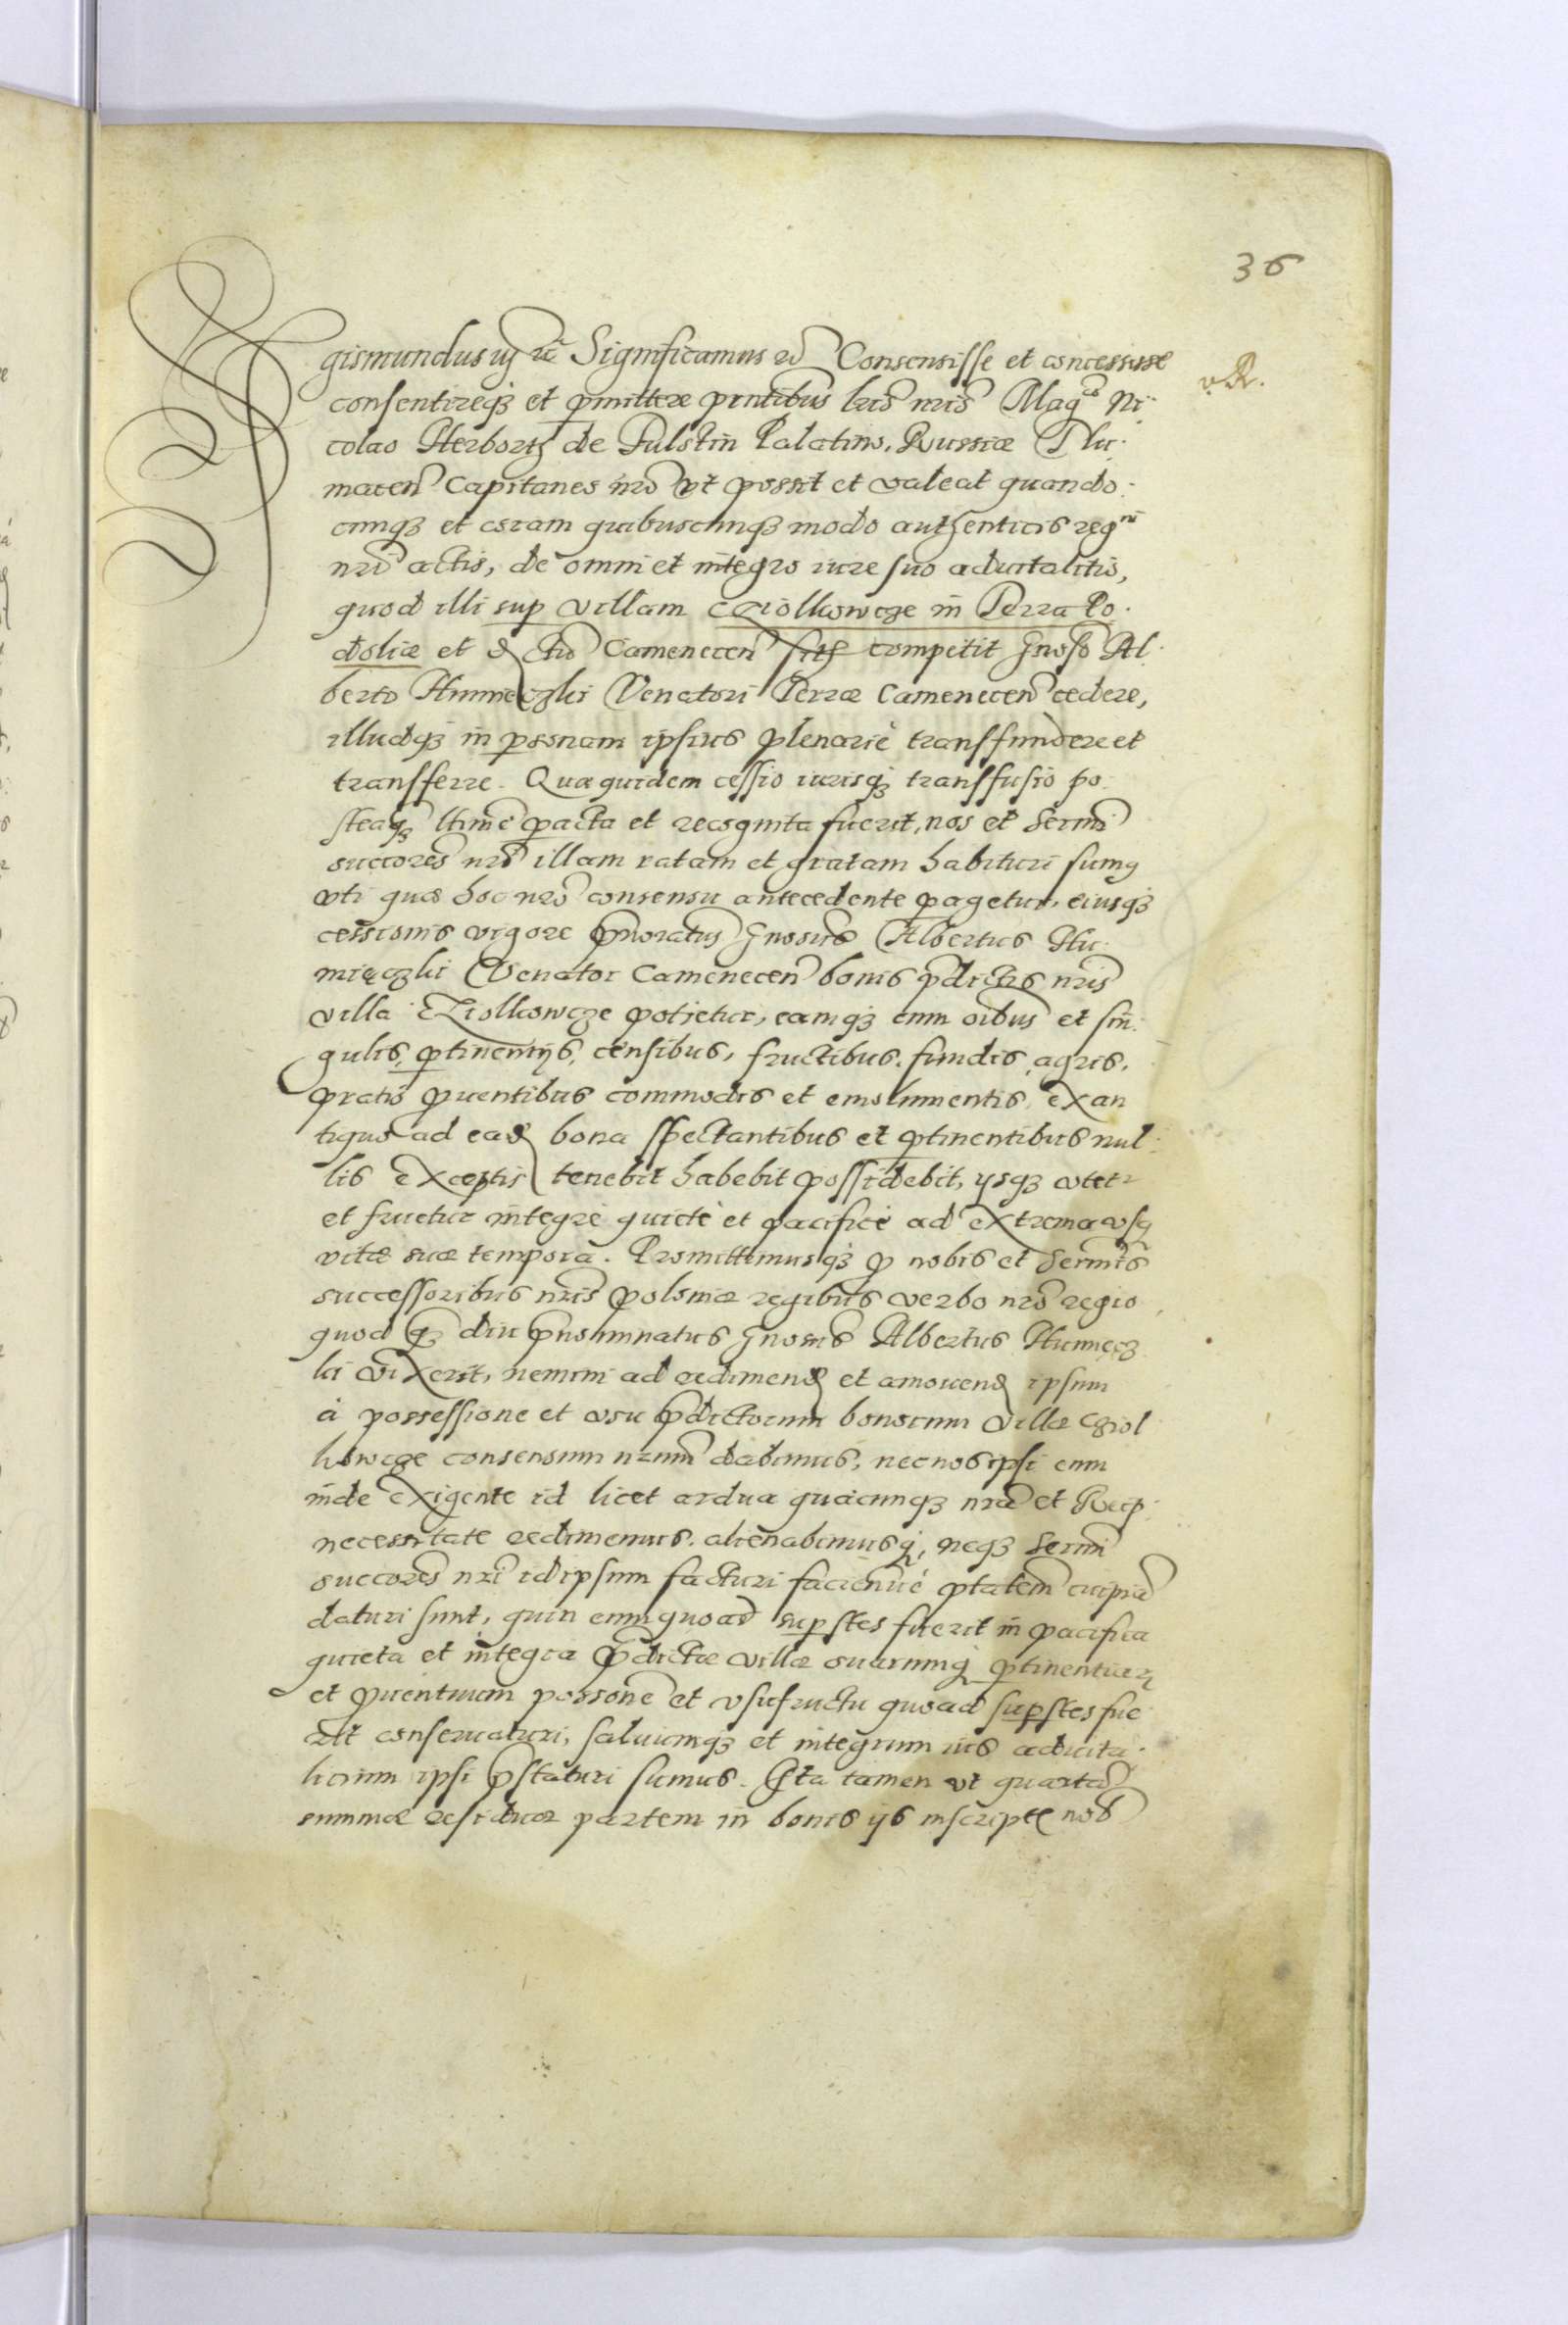 36
Sigismundus iij etc̃ Significamus etc̃ Consensisse et concessisse
v. R.
consentireq3 et pmittere pntibus lris nris Magco Ni-
colao Herbortt de Fulstin Palatino Russiæ Thu-
macen Capitaneo nro vt possit et valeat quando-
cunq3 et coram quibuscunq3 modo authenticis regni
nri actis, de omni et integro iure suo aduitalitio,
quod illi sup villam Cziolkowcze in Terra Po-
doliæ et d ctu Camenecen sitt competit gnoso Al-
berto Humieczki Venatori Terræ Camenecen cedere,
illudq3 in psonam ipsius plenariè transfundere et
transferre. Quæ quidem cessio iurisq3 transfusio po-
steaq3 ltime pacta et recognita fuerit, nos et Sermi
succores nri illam ratam et gratam habituri sum9
vti quæ hoc nro consensu antecedente pagetur, eiusq3
cessionis vigore pnoiatus gnosus Albertus Hu-
mięczki Venator Camenecen bonis pdictis nris
villa Cziolkowcze potietur, eamq3 cum oibus et sin-
gulis ptinentijs, censibus, fructibus, fundis, agris,
pratis puentibus commodis et emolumentis, ex an
tiquo ad ead bona spectantibus et ptinentibus nul-
lis exceptis tenebit habebit possidebit, ijsq3 vtetr
et fruetur integrè quietè et pacificè ad extrema vsq
vitæ suæ tempora. Promittimusq3 p nobis et Sermis
successoribus nris Poloniæ regibus verbo nro regio
quod q3 diu pnominatus gnosus Albertus Humięcz
ki vixerit, nemini ad redimend et amouend ipsum
à possessione et vsu pdictorum bonorum villæ Cziol
kowcze consensum nrum dabimus, nec nos ipsi eum
inde exigente id licet ardua quacunq3 nra et Reip.
necessitate redimemus, alienabimusq, neq3 Sermi
succores nri idipsum facturi faciendiue ptatem cuipia
daturi sunt, quin eum quoad supstes fuerit in pacifica
quieta et integra pdictæ villæ suarumq ptinentiar
et puentuum possone et vsufructu quoad supstes fue
rit conseruaturi, saluumq3 et integrum ius aduita-
licium ipsi pstaturi sumus. Ita tamen vt quartã
summæ residuæ partem in bonis ijs inscriptæ nob